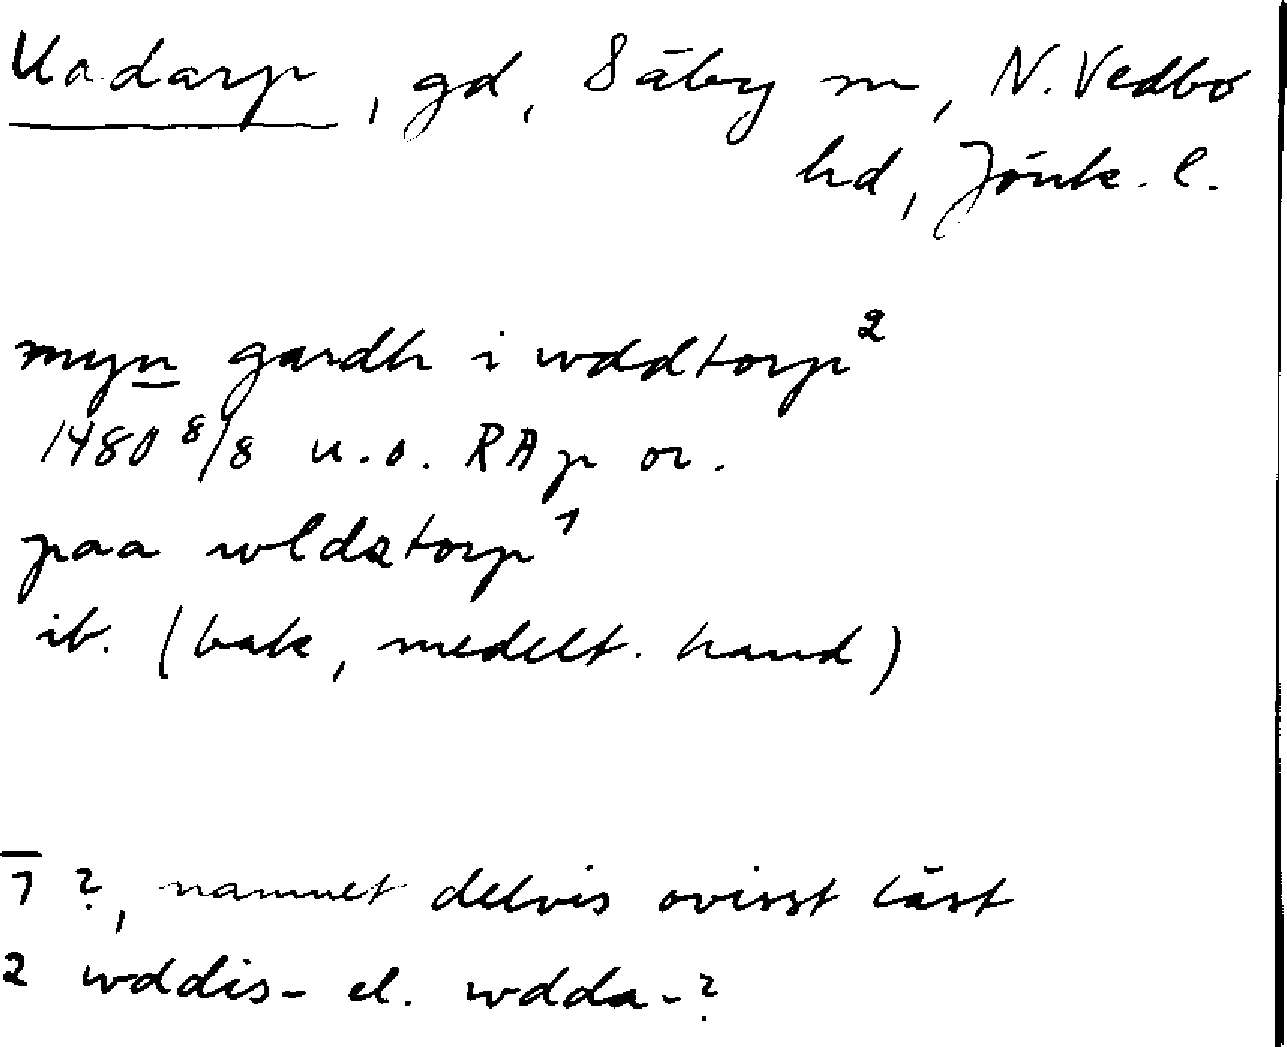 Uddarp, gd, Säby sn, N. Vedbo
hd, Jönk. l.
myn gardh i wddtorp²
1480 8/8 u.o. RAp or.
paa wldztorp¹
ib. (bak, medelt. hand)
1 ?, namnet delvis ovisst läst
2 wddis- el. wdda-?